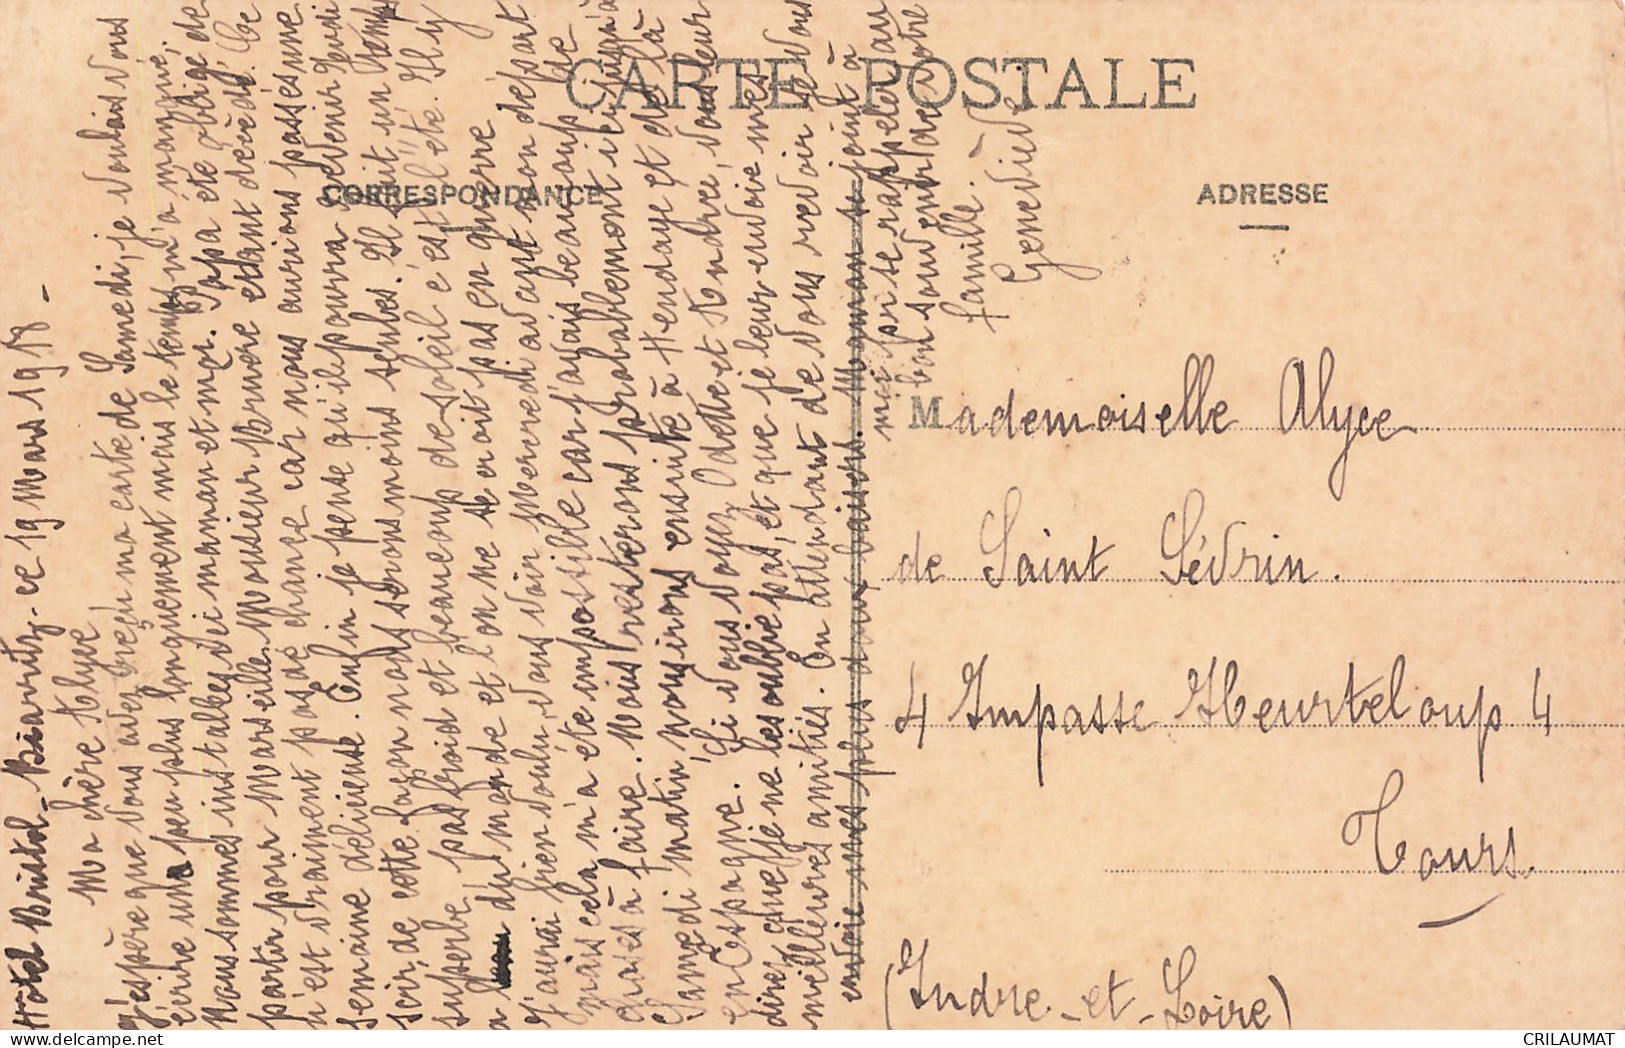 CARTE POSTALE
CORRESPONDANCE
ADRESSE
Hôtel Bristol - Biarritz - ce 19 Mars 1918 -
Ma chère Alyce
J'espère que vous avez reçu ma carte de Samedi, je voulais vous
écrire un peu plus longuement mais le temps m'a manqué.
Nous sommes installées ici maman et moi. Papa a été obligé de
partir pour Marseille Monsieur Bruière étant décédé. Ce
n'est vraiment pas de chance car nous aurions passé une
semaine délicieuse. Enfin je pense qu'il pourra revenir Jeudi
soir, de cette façon nous serons moins seules. Il fait un temps
superbe, pas froid et beaucoup de soleil c'est l'été. Il y
a du monde et l'on ne se croit pas en guerre
J'aurai bien voulu vous voir Mercredi avant mon départ
mais cela m'a été impossible car j'avais beaucoup de
choses à faire. Nous resterons probablement ici jusqu'à
Samedi matin, nous irons ensuite à Hendaye et de là
en Espagne. Si vous voyez Odette et Andrée, vous leur
direz que je ne les oublie pas, et que je leur envoie mes
meilleures amitiés. En attendant de vous revoir je vous
envoie mes plus doux baisers. Maman se joint à
moi pr se rappeler au
bon souvenir de votre
famille.
Geneviève
Mademoiselle Alyce
de Saint Sévrin.
4 Impasse Heurteloup 4
Tours.
(Indre-et-Loire)
CRILAUMAT